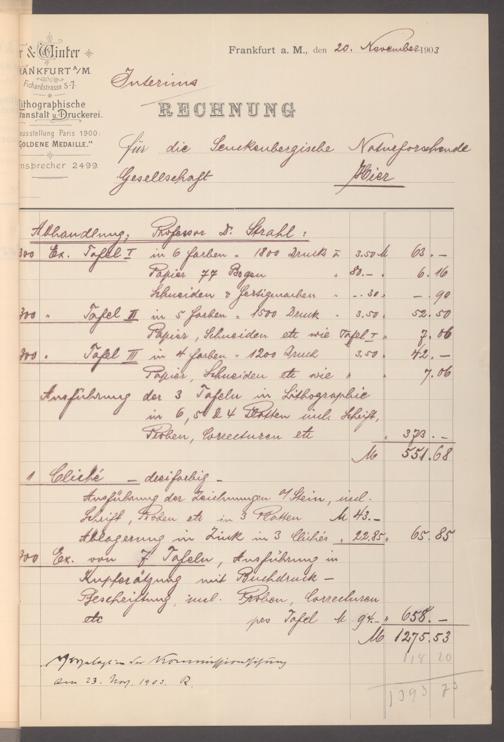 r & Winter
FRANKFURT A/M.
Fichardstrasse 5-7.
Lithographische
Anstalt u. Druckerei.
Ausstellung Paris 1900:
"GOLDENE MEDAILLE."
Fernsprecher 2499.
Frankfurt a. M., den 20. November 1903
Interims
RECHNUNG
für die Senckenbergische Naturforschende
Gesellschaft Hier
Abhandlung: Professor Dr. Strahl:
300 Ex. Tafel I in 6 Farben = 1800 Druck à 3.50 M 63.–
Papier 77 Bogen " 80.– " 6.16
Schneiden & fertigmachen " –.30 " –.90
300 " Tafel II in 5 Farben = 1500 Druck " 3.50 " 52.50
Papier, Schneiden etc wie Tafel I " 7.06
300 " Tafel III in 4 Farben = 1200 Druck " 3.50 " 42.–
Papier, Schneiden etc wie " " " 7.06
Ausführung der 3 Tafeln in Lithographie
in 6, 5 & 4 Platten incl. Schrift,
Proben, Correcturen etc " 373.–
M 551.68
1 Cliché – dreifarbig –
Ausführung der Zeichnungen a/Stein, incl.
Schrift, Proben etc in 3 Platten M 43.–
Ablagerung in Zink in 3 Clichés " 22.85 " 65.85
300 Ex. von 7 Tafeln, Ausführung in
Kupferätzung mit Buchdruck –
Beschriftung, incl. Proben, Correcturen
etc pro Tafel M 94.– " 658.–
M 1275.53
118 20
1393 73
Vorgelegt in der Kommissionssitzung
am 23. Nov. 1903. R.